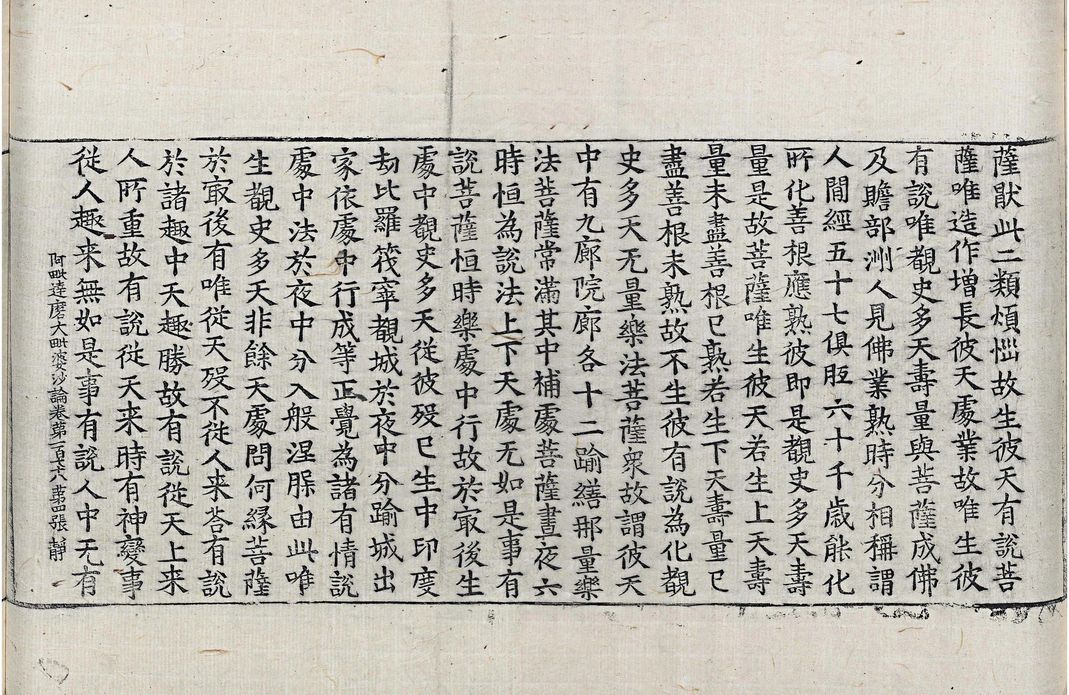 薩猒此二類煩惱故生彼天有說菩
薩唯造作增長彼天處業故唯生彼
有說唯覩史多天壽量與菩薩成佛
及贍部洲人見佛業熟時分相稱謂
人間經五十七俱胝六十千歲能化
所化善根應熟彼即是覩史多天壽
量是故菩薩唯生彼天若生上天壽
量未盡善根已熟若生下天壽量已
盡善根未熟故不生彼有說為化覩
史多天无量樂法菩薩衆故謂彼天
中有九廊院廊各十二踰繕那量樂
法菩薩常滿其中補處菩薩晝夜六
時恒為說法上下天處无如是事有
說菩薩恒時樂處中行故於㝡後生
處中覩史多天從彼歿已生中印度
劫比羅筏窣覩城於夜中分踰城出
家依處中行成等正覺為諸有情說
處中法於夜中分入般涅槃由此唯
生覩史多天非餘天處問何緣菩薩
於㝡後有唯從天歿不從人来荅有說
於諸趣中天趣勝故有說從天上来
人所重故有說從天来時有神變事
從人趣来無如是事有說人中无有
阿毗達磨大毗婆沙論卷第一百七十八 第四張 靜